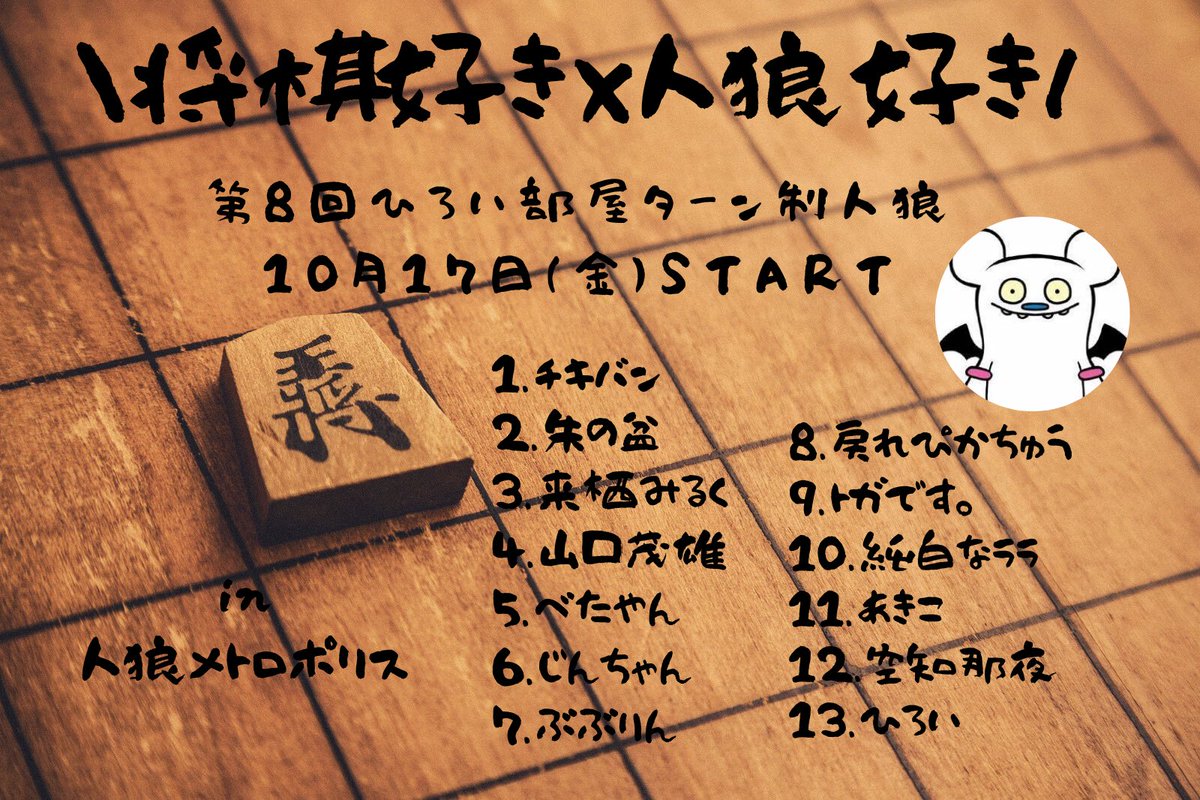 \将棋好き×人狼好き/
第8回ひろい部屋ターン制人狼
10月17日(金)START
1.チキバン
2.朱の盆
3.来栖みるく
4.山口茂雄
5.べたやん
6.じんちゃん
7.ぶぶりん
8.戻れぴかちゅう
9.トガです。
10.純白なララ
11.あきこ
12.空知那夜
13.ひろい
in
人狼メトロポリス